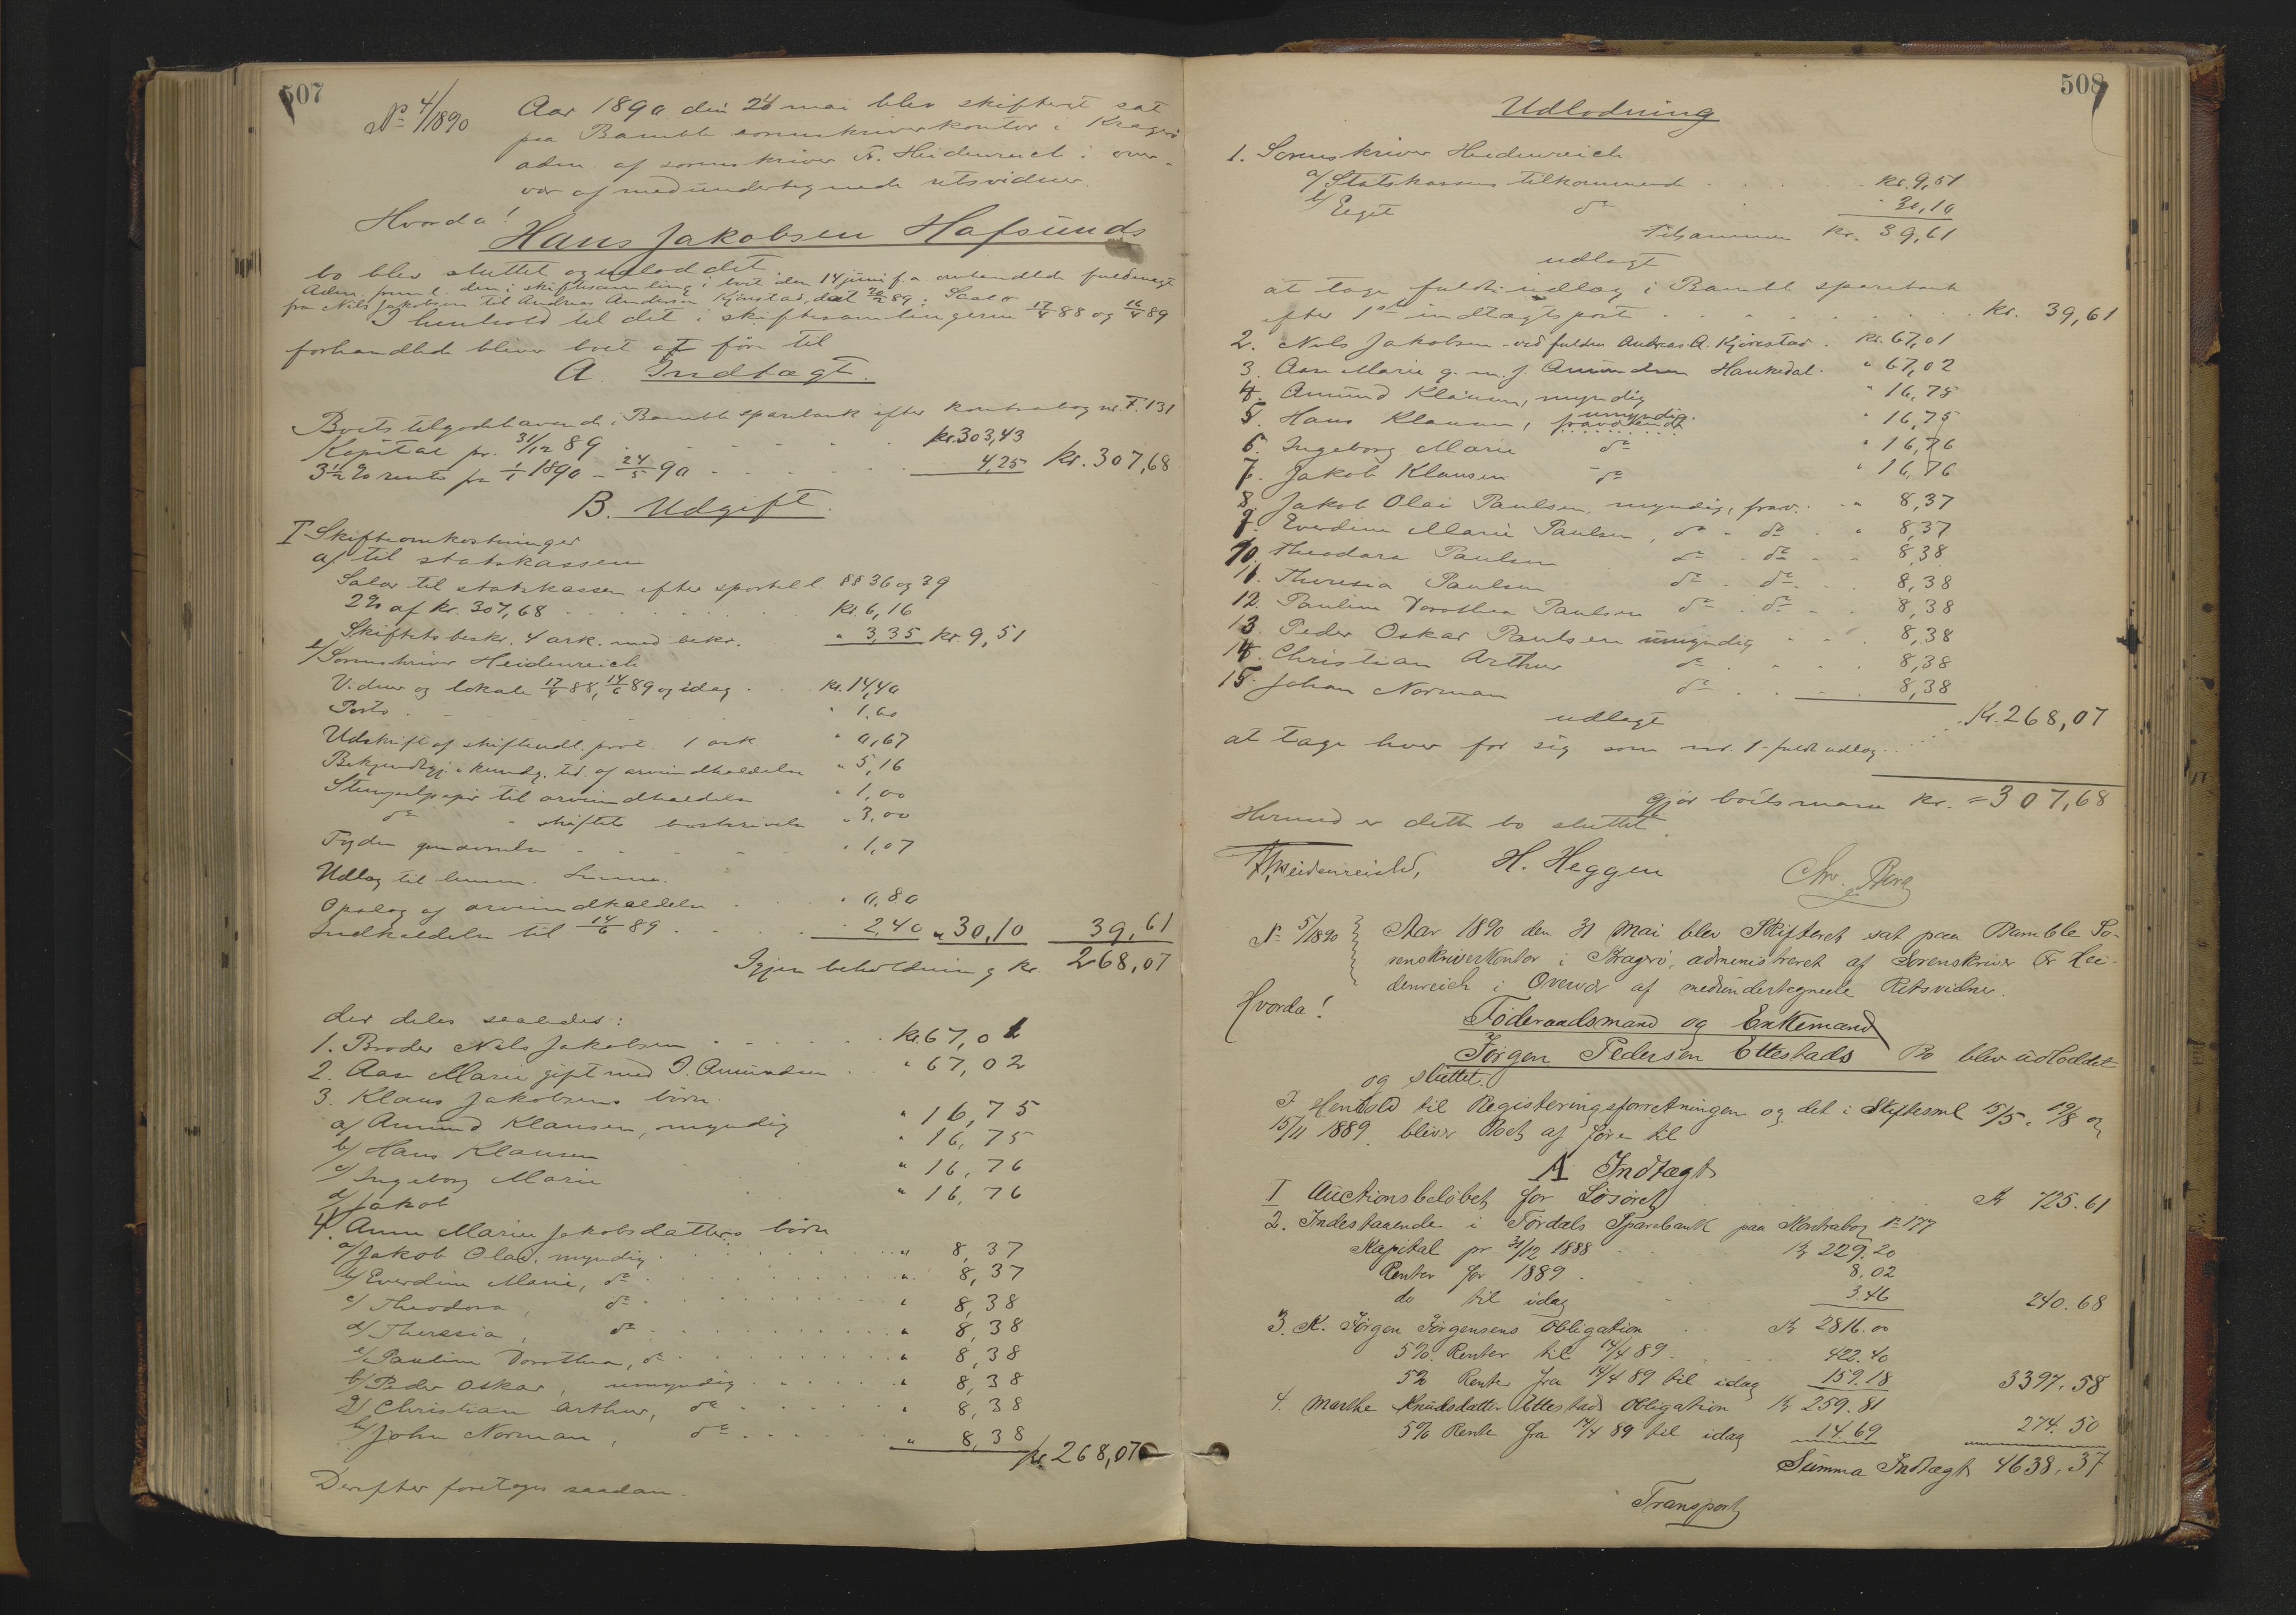 507
No 4/1890
Aar 1890 den 24 mai blev skifteret sat
paa Bamble sorenskriverkontor i Kragerö
adm. af sorenskriver Fr. Heidenreich i over-
vær af medundertegnede retsvidner.
Hvorda!
Hans Jakobsen Hafsunds
bo blev sluttet og udloddet
Adm. freml. den i skiftesamling i boet den 14 juni f.a. omhandlede fuldmagt
fra Nils Jakobsen til Andreas Andersen Kjörstad, dat 20/2 89.
I henhold til det i skiftesamlingerne 17/4 88 og 14/6 89
forhandlede bliver boet at före til
A. Indtægt.
Boets tilgodehavende i Bamble sparebank efter kontrabog nr. F. 131
Kapital pr. 31/12 89 kr. 303,43
3 1/2 % rente fra 1/1 1890 - 24/5 90 4,25 kr. 307,68
B. Udgift.
I Skifteomkostninger
a/ til statskassen
Salær til statskassen efter sportell. §§ 36 og 39
2% af kr. 307,68 kr. 6,16
Skiftets beskr. 4 ark. med bekr. " 3,35 kr. 9,51
b/ Sorenskriver Heidenreich
Vidner og lokale 17/4 88, 14/6 89 og idag kr. 14,40
Porto " 1,60
Udskrift af skifteudl. prot. 1 ark " 0,67
Bekjendtgj. i kundg. tid. af arveindkaldelse " 5,16
Stempelpapir til arveindkaldelse " 1,00
do " skiftets beskrivelse " 3,00
Fogden gjennemsn " 1,07
Udlæg til lensm.
Opslag af arveindkaldelse " 0,80
Indkaldelse til 14/6 89 2,40 " 30,10 39,61
Igjen beholdning kr. 268,07
der deles saaledes:
1. Broder Nils Jakobsen kr. 67,01
2. Aase Marie gift med J. Amundsen " 67,02
3. Klaus Jakobsens börn
a/ Amund Klausen, myndig " 16,75
b/ Hans Klausen " 16,75
c/ Ingeborg Marie " 16,76
d/ Jakob " 16,76
4. Anne Marie Jakobsdatters börn
a/ Jakob Olai, myndig " 8,37
b/ Everdine Marie, do " 8,37
c/ Theodora, do " 8,38
d/ Theresia, do " 8,38
e/ Pauline Dorothea, do " 8,38
f/ Peder Oskar, umyndig " 8,38
g/ Christian Arthur, do " 8,38
h/ John Norman, do " 8,38 kr. 268,07
Derefter foretoges saadan
508
Udlodning
1. Sorenskriver Heidenreich
a/ Statskassens tilkommende kr. 9,51
b/ Eget do " 30,10
tilsammen kr. 39,61
udlagt
at tage fuldt udlæg i Bamble sparebank
efter 1ste indtægtspost kr. 39,61
2. Nils Jakobsen - ved fuldm. Andreas A. Kjörestad kr. 67,01
3. Aase Marie g. m. J. Amundsen Haukedal " 67,02
4. Amund Klausen, myndig " 16,75
5. Hans Klausen, umyndig. " 16,75
6. Ingeborg Marie do " 16,76
7. Jakob Klausen do " 16,76
8. Jakob Olai Paulsen, myndig, frav. " 8,37
9. Everdine Marie Paulsen, do - do " 8,37
10. Theodora Paulsen do - do 8,38
11. Theresia Paulsen do - do 8,38
12. Pauline Dorothea Paulsen do - do 8,38
13. Peder Oskar Paulsen umyndig 8,38
14. Christian Arthur do 8,38
15. Johan Norman do 8,38
udlagt kr. 268,07
at tage hver for sig som nr. 1 - fuldt udlæg
gjör boets masse kr. = 307,68
Hermed er dette bo sluttet.
Fr Heidenreich, H. Heggen Chr. Berg
No 5/1890
Aar 1890 den 31 Mai blev Skifteret sat paa Bamble So-
renskriverkontor i Kragerö, administreret af Sorenskriver Fr Hei-
denreich i Overvær af medundertegnede Retsvidner.
Hvorda!
Föderaadsmand og Enkemand
Jörgen Pedersen Ettestads Bo blev udloddet
og sluttet.
I Henhold til Registeringsforretningen og det i Skiftesml 15/5. 19/8 og
15/11 1889 bliver Boet at före til
A Indtægt
1 Auctionsbelöbet for Lösöret Kr 725.61
2. Indestaaende i Tördals Sparebank paa Kontrabog No 177
Kapital pr 31/12 1888 Kr 229.20
Renter for 1889 8.02
do til idag 3.46 240.68
3. K. Jörgen Jörgensens Obligation Kr 2816.00
5% Renter til 14/4 89 422.40
5% Rente fra 14/4 89 til idag 159.18 3397.58
4. Marthe Knudsdatter Ettestads Obligation Kr 259.81
5% Rente fra 14/4 89 til idag 14.69 274.50
Summa Indtægt 4638.37
Transport